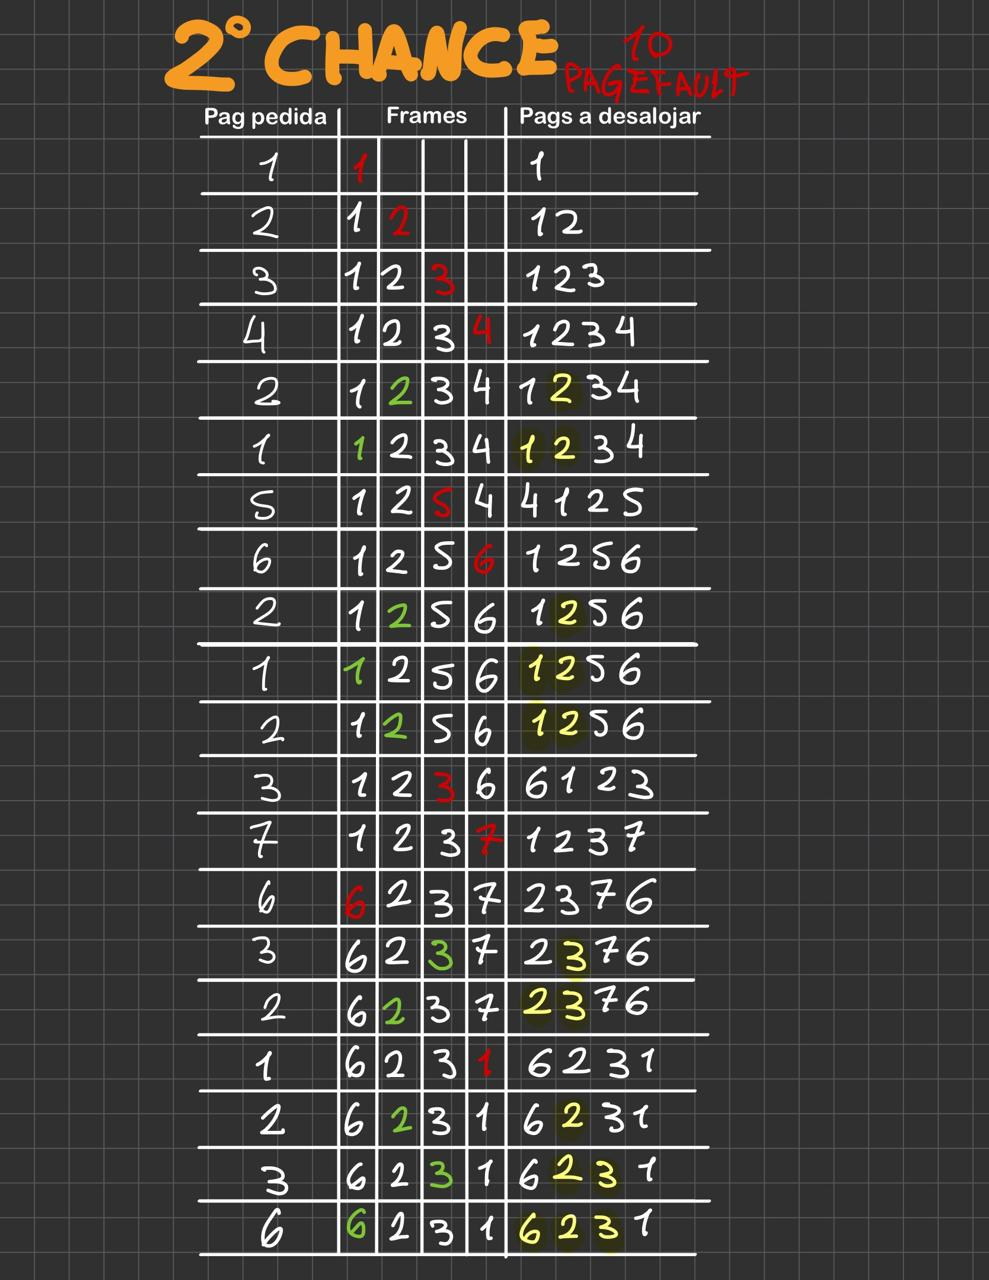 2° CHANCE 10
PAGEFAULT
Pag pedida Frames Pags a desalojar
1 1 1
2 1 2 1 2
3 1 2 3 1 2 3
4 1 2 3 4 1 2 3 4
2 1 2 3 4 1 2 3 4
1 1 2 3 4 1 2 3 4
5 1 2 5 4 4 1 2 5
6 1 2 5 6 1 2 5 6
2 1 2 5 6 1 2 5 6
1 1 2 5 6 1 2 5 6
2 1 2 5 6 1 2 5 6
3 1 2 3 6 6 1 2 3
7 1 2 3 7 1 2 3 7
6 6 2 3 7 2 3 7 6
3 6 2 3 7 2 3 7 6
2 6 2 3 7 2 3 7 6
1 6 2 3 1 6 2 3 1
2 6 2 3 1 6 2 3 1
3 6 2 3 1 6 2 3 1
6 6 2 3 1 6 2 3 1